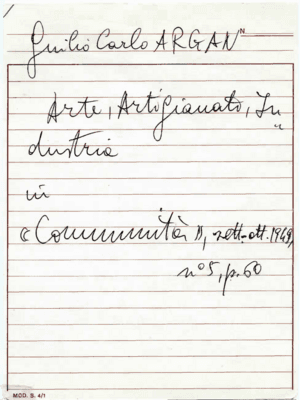 Giulio Carlo ARGAN
N
Arte, Artigianato, In
dustria
in
« Comunità », sett.-ott. 1949,
n° 5, p. 60
MOD. S. 4/1